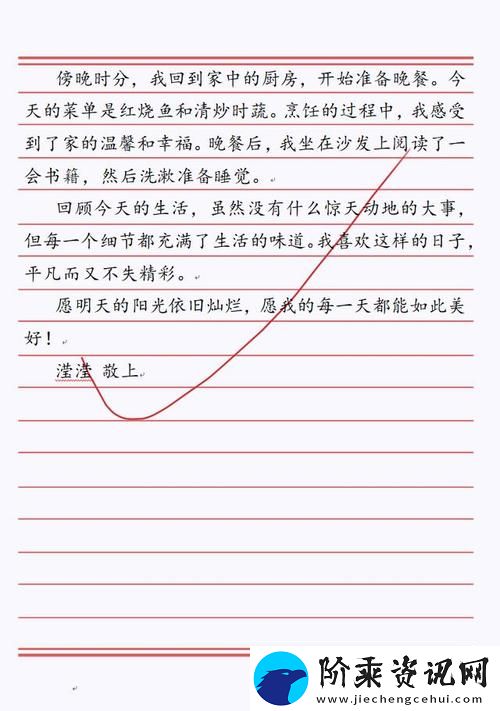 傍晚时分，我回到家中的厨房，开始准备晚餐。今
天的菜单是红烧鱼和清炒时蔬。烹饪的过程中，我感受
到了家的温馨和幸福。晚餐后，我坐在沙发上阅读了一
会书籍，然后洗漱准备睡觉。
回顾今天的生活，虽然没有什么惊天动地的大事，
但每一个细节都充满了生活的味道。我喜欢这样的日子，
平凡而又不失精彩。
愿明天的阳光依旧灿烂，愿我的每一天都能如此美
好！
滢滢 敬上
阶乘资讯网
www.jiechengcehui.com